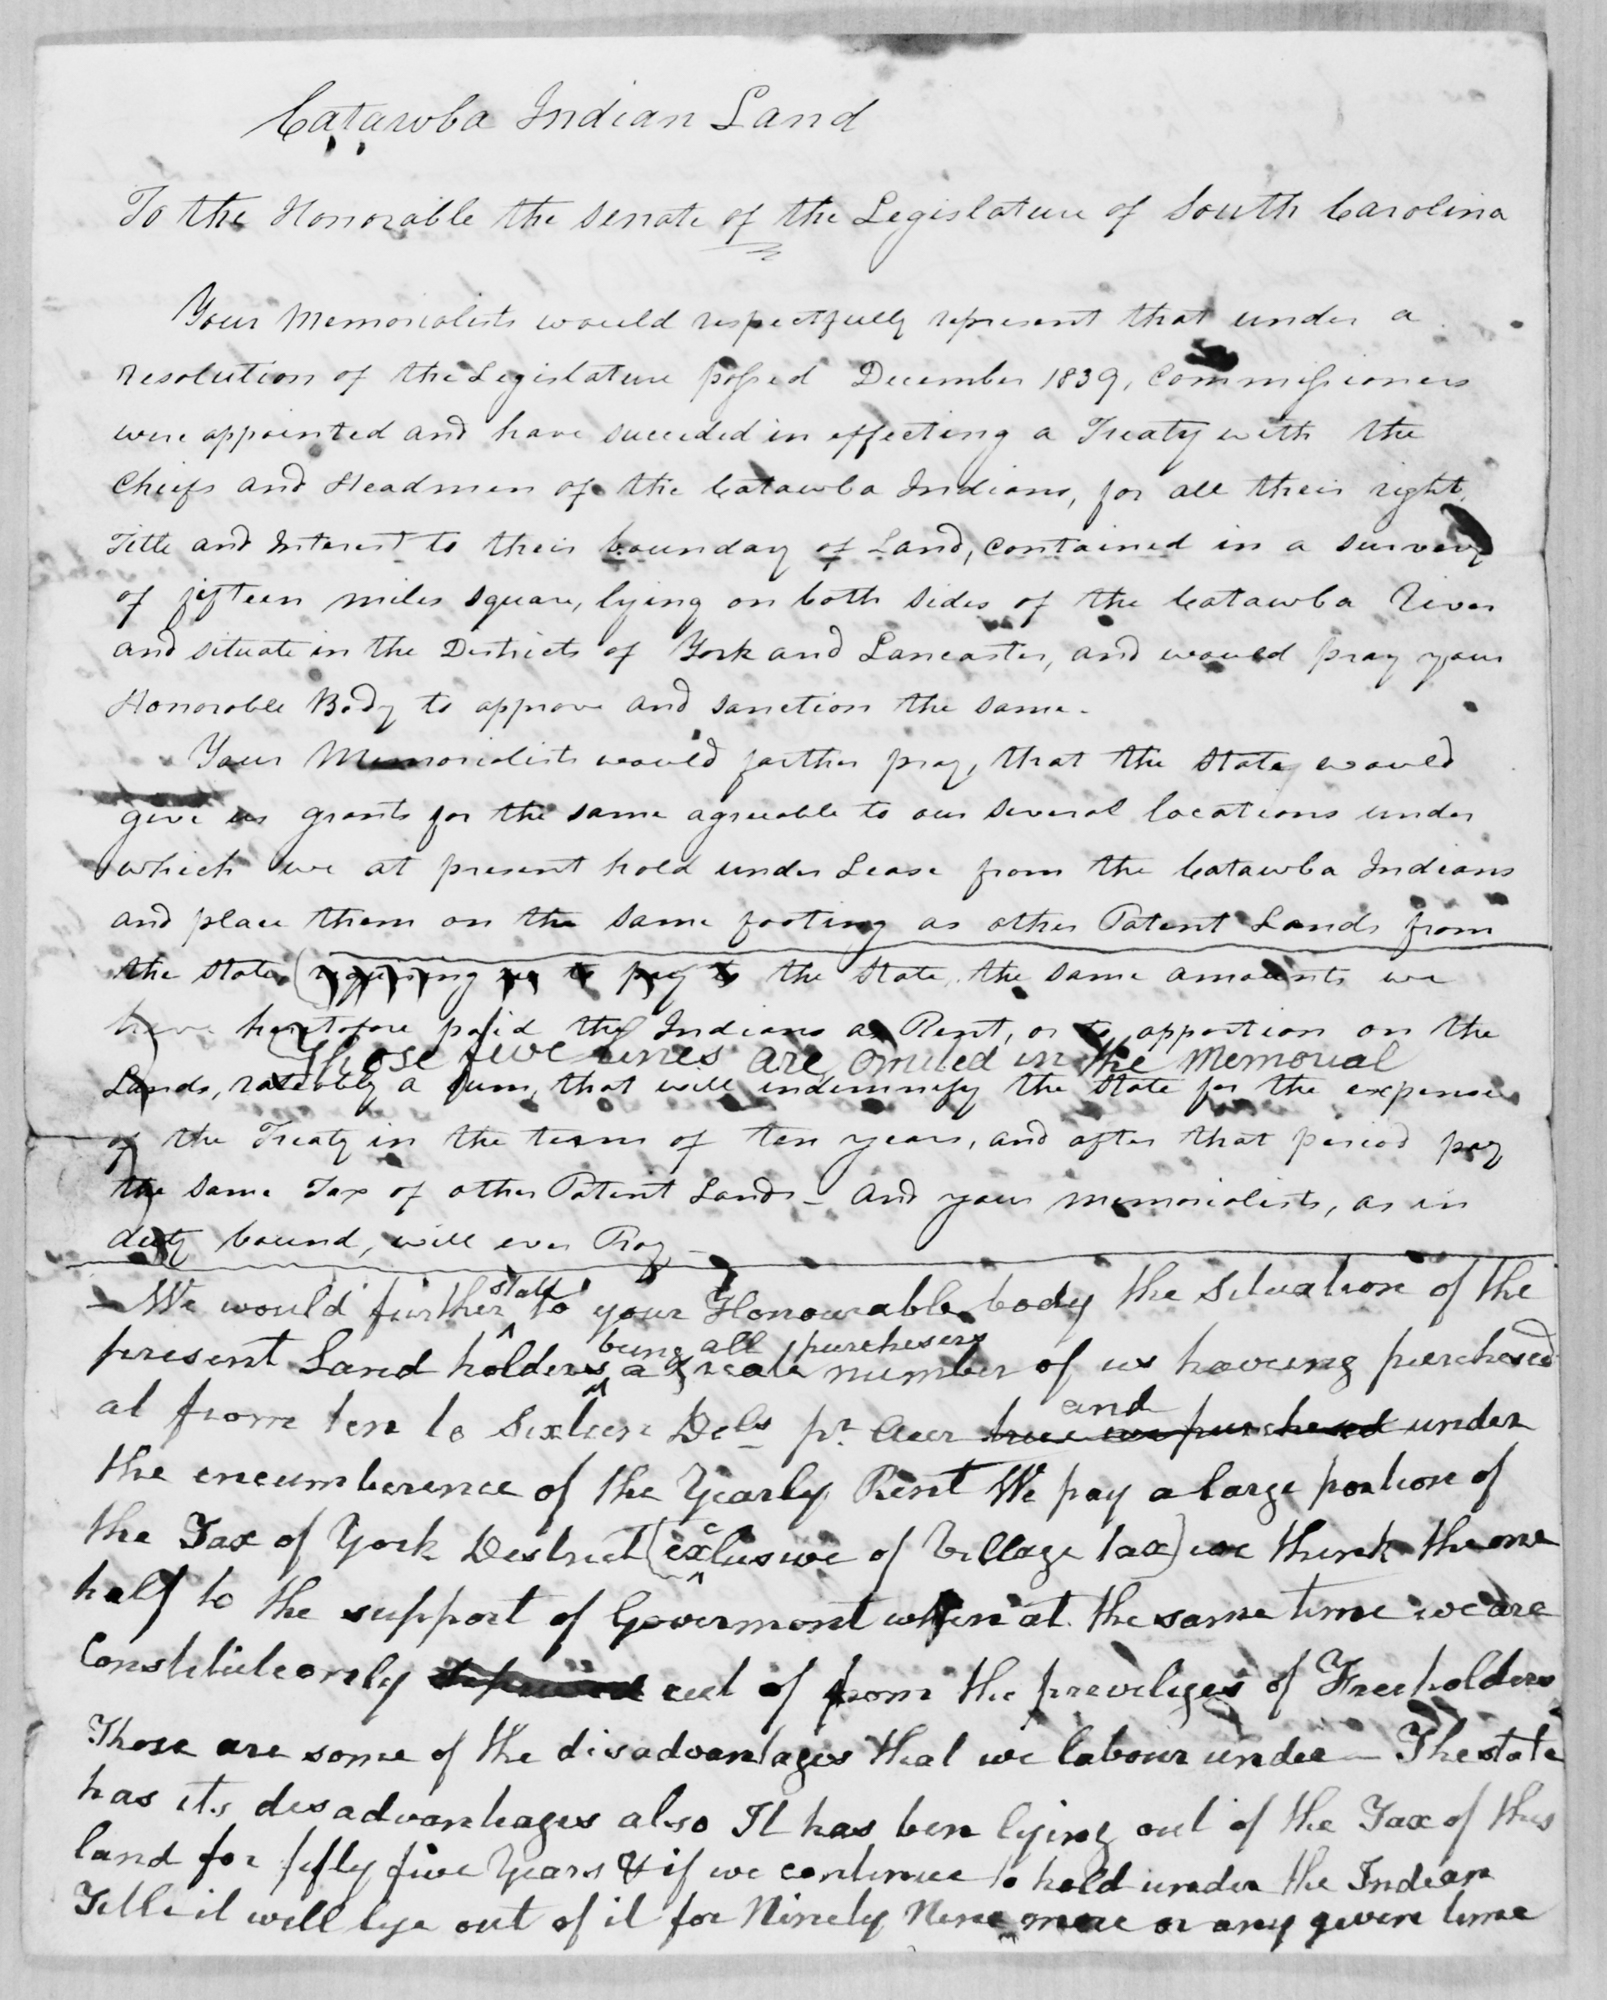 Catawba Indian Land
To the Honorable the Senate of the Legislature of South Carolina
Your Memorialists would respectfully represent that under a
resolution of the Legislature passed December 1839, Commissioners
were appointed and have succeded in effecting a Treaty with the
Chiefs and Headmen of the Catawba Indians, for all their right,
Title and Interest to their bounday of Land, contained in a survey
of fifteen miles square, lying on both sides of the Catawba River
and situate in the Districts of York and Lancaster, and would pray your
Honorable Body to approve and sanction the same.
Your Memorialists would farther pray, that the State would
give us grants for the same agreeable to our several locations under
which we at present hold under Lease from the Catawba Indians
and place them on the same footing as other Patent Lands from
the State (requiring us to pay to the State, the same amounts we
have heretofore paid the Indians as Rent, or to apportion on the
Those five lines are omited in the Memorial
Lands, rateably a sum, that will indemnify the State for the expense
of the Treaty in the term of ten years, and after that period pay
the same Tax of other Patent Lands - And your memorialists, as in
duty bound, will ever Pray
- We would further state to your Honourable body the situation of the
present Land holders being all purchesers a greate number of us haveing purchesed
at from ten to Sixteen Dols pr. Acer and under
the encumberence of the Yearly Rent We pay a large portion of
the Tax of York Destrict (exclusive of Village tax) we think the one
half to the support of Goverment when at the same time we are
Constitutionly cut of from the priveliges of Freeholders
Those are some of the disadvantages that we labour under - The state
has its desadvantages also It has ben lying out of the Tax of this
land for fifty five Years & if we continue to hold under the Indian
Title it will lye out of it for Ninety Nine more or any given time